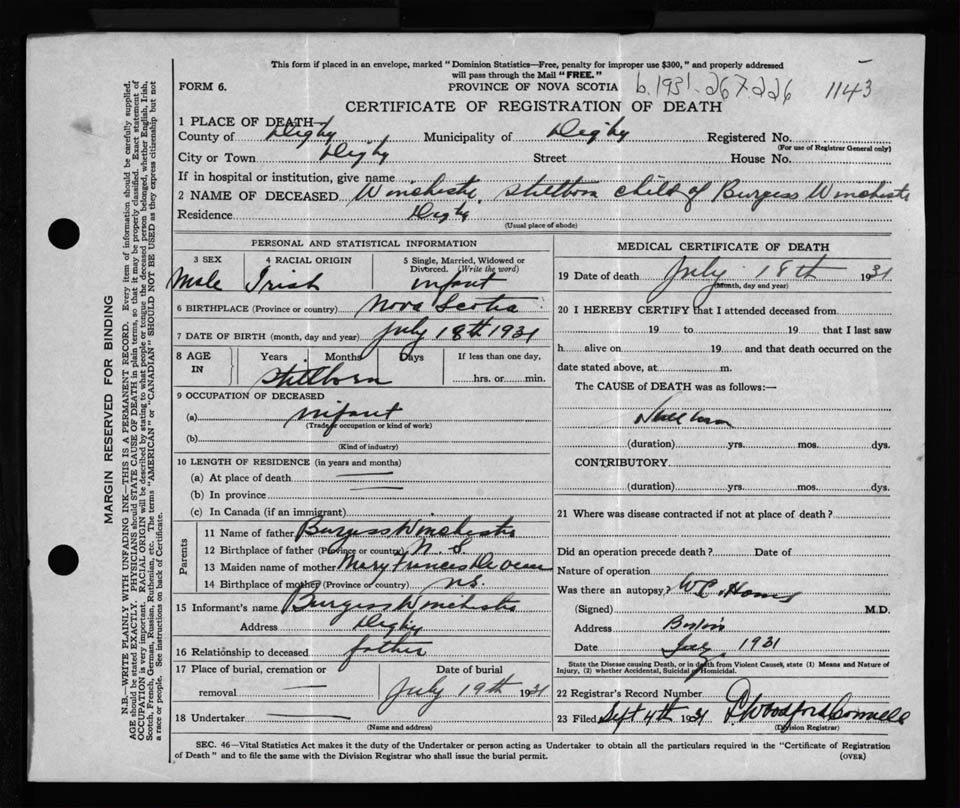 This form if placed in an envelope, marked "Dominion Statistics—Free, penalty for improper use $300," and properly addressed
will pass through the Mail "FREE."
FORM 6. PROVINCE OF NOVA SCOTIA b. 1931-267226 1143
CERTIFICATE OF REGISTRATION OF DEATH
1 PLACE OF DEATH—
County of Digby Municipality of Digby Registered No.
(For use of Registrar General only)
City or Town Digby Street House No.
If in hospital or institution, give name
2 NAME OF DECEASED Winchester, Stillborn child of Burgess Winchester
Residence Digby
(Usual place of abode)
PERSONAL AND STATISTICAL INFORMATION
3 SEX 4 RACIAL ORIGIN 5 Single, Married, Widowed or
Divorced. (Write the word)
Male Irish infant
6 BIRTHPLACE (Province or country) Nova Scotia
7 DATE OF BIRTH (month, day and year) July 18th 1931
8 AGE IN Years Months Days If less than one day,
Stillborn hrs. or min.
9 OCCUPATION OF DECEASED
(a) infant
(Trade, occupation or kind of work)
(b)
(Kind of industry)
10 LENGTH OF RESIDENCE (in years and months)
(a) At place of death
(b) In province
(c) In Canada (if an immigrant)
Parents
11 Name of father Burgess Winchester
12 Birthplace of father (Province or country) N. S.
13 Maiden name of mother Mary Frances
14 Birthplace of mother (Province or country) N.S.
15 Informant's name Burgess Winchester
Address Digby
16 Relationship to deceased father
17 Place of burial, cremation or Date of burial
removal — July 19th 1931
18 Undertaker —
(Name and address)
MEDICAL CERTIFICATE OF DEATH
19 Date of death July 18th 1931
(Month, day and year)
20 I HEREBY CERTIFY that I attended deceased from
19 to 19 that I last saw
h alive on 19 and that death occurred on the
date stated above, at m.
The CAUSE of DEATH was as follows:—
Stillborn
(duration) yrs. mos. dys.
CONTRIBUTORY
(duration) yrs. mos. dys.
21 Where was disease contracted if not at place of death?
Did an operation precede death? Date of
Nature of operation
Was there an autopsy?
(Signed) M.D.
Address
Date 1931
State the Disease causing Death, or in death from Violent Causes, state (1) Means and Nature of
Injury, (2) whether Accidental, Suicidal or Homicidal.
22 Registrar's Record Number
23 Filed Sept 4th 1931
(Division Registrar)
SEC. 46—Vital Statistics Act makes it the duty of the Undertaker or person acting as Undertaker to obtain all the particulars required in the "Certificate of Registration
of Death" and to file the same with the Division Registrar who shall issue the burial permit. (OVER)
MARGIN RESERVED FOR BINDING
N.B.—WRITE PLAINLY WITH UNFADING INK—THIS IS A PERMANENT RECORD. Every item of information should be carefully supplied.
AGE should be stated EXACTLY. PHYSICIANS should STATE CAUSE OF DEATH in plain terms, so that it may be properly classified. Exact statement of
OCCUPATION is very important. RACIAL ORIGIN will be described by stating to what people or tongue the deceased person belonged, whether English, Irish,
Scotch, French, German, Russian, Ruthenian, etc. The terms "AMERICAN" or "CANADIAN" SHOULD NOT BE USED as they express citizenship but not
a race or people. See instructions on back of Certificate.